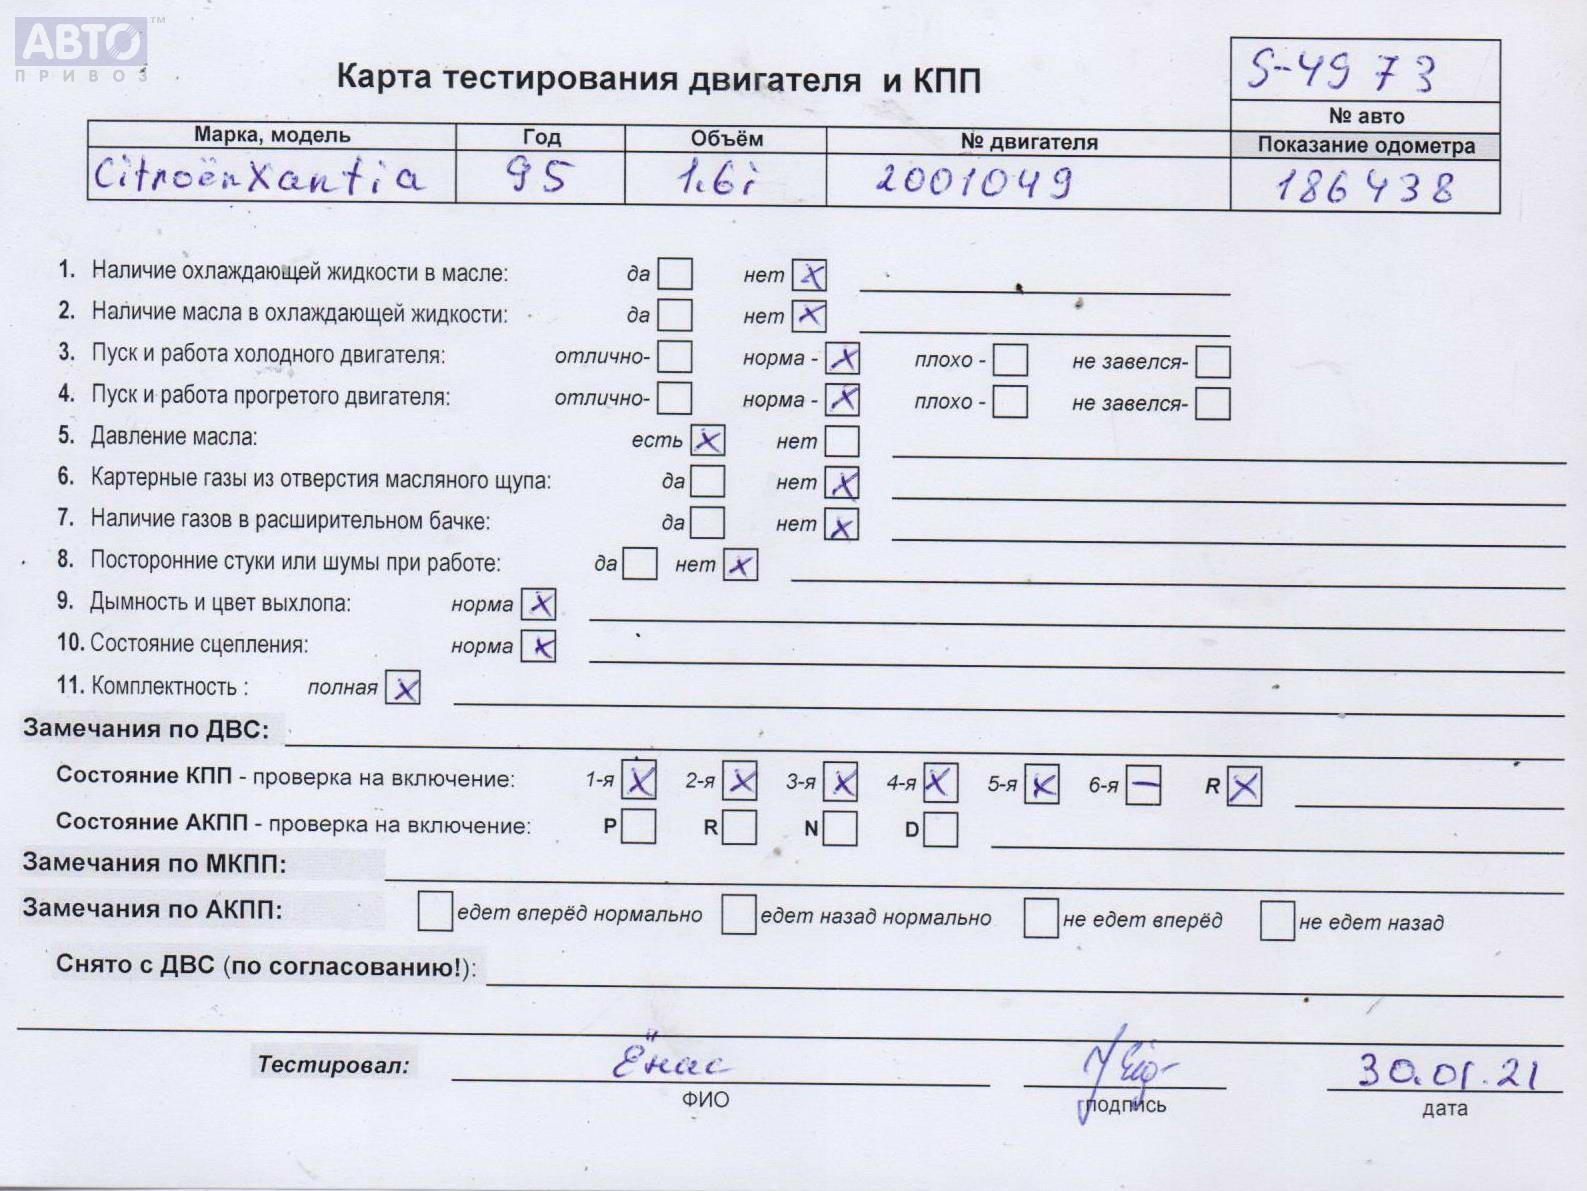 АВТО™
ПРИВОЗ
Карта тестирования двигателя и КПП
S-4973
№ авто
Марка, модель Год Объём № двигателя Показание одометра
Citroën Xantia 95 1.6i 2001049 186438
1. Наличие охлаждающей жидкости в масле: да нет X
2. Наличие масла в охлаждающей жидкости: да нет X
3. Пуск и работа холодного двигателя: отлично- норма - X плохо - не завелся-
4. Пуск и работа прогретого двигателя: отлично- норма - X плохо - не завелся-
5. Давление масла: есть X нет
6. Картерные газы из отверстия масляного щупа: да нет X
7. Наличие газов в расширительном бачке: да нет X
8. Посторонние стуки или шумы при работе: да нет X
9. Дымность и цвет выхлопа: норма X
10. Состояние сцепления: норма X
11. Комплектность : полная X
Замечания по ДВС:
Состояние КПП - проверка на включение: 1-я X 2-я X 3-я X 4-я X 5-я X 6-я — R X
Состояние АКПП - проверка на включение: P R N D
Замечания по МКПП:
Замечания по АКПП: едет вперёд нормально едет назад нормально не едет вперёд не едет назад
Снято с ДВС (по согласованию!):
Тестировал: Ёнас 30.01.21
ФИО подпись дата